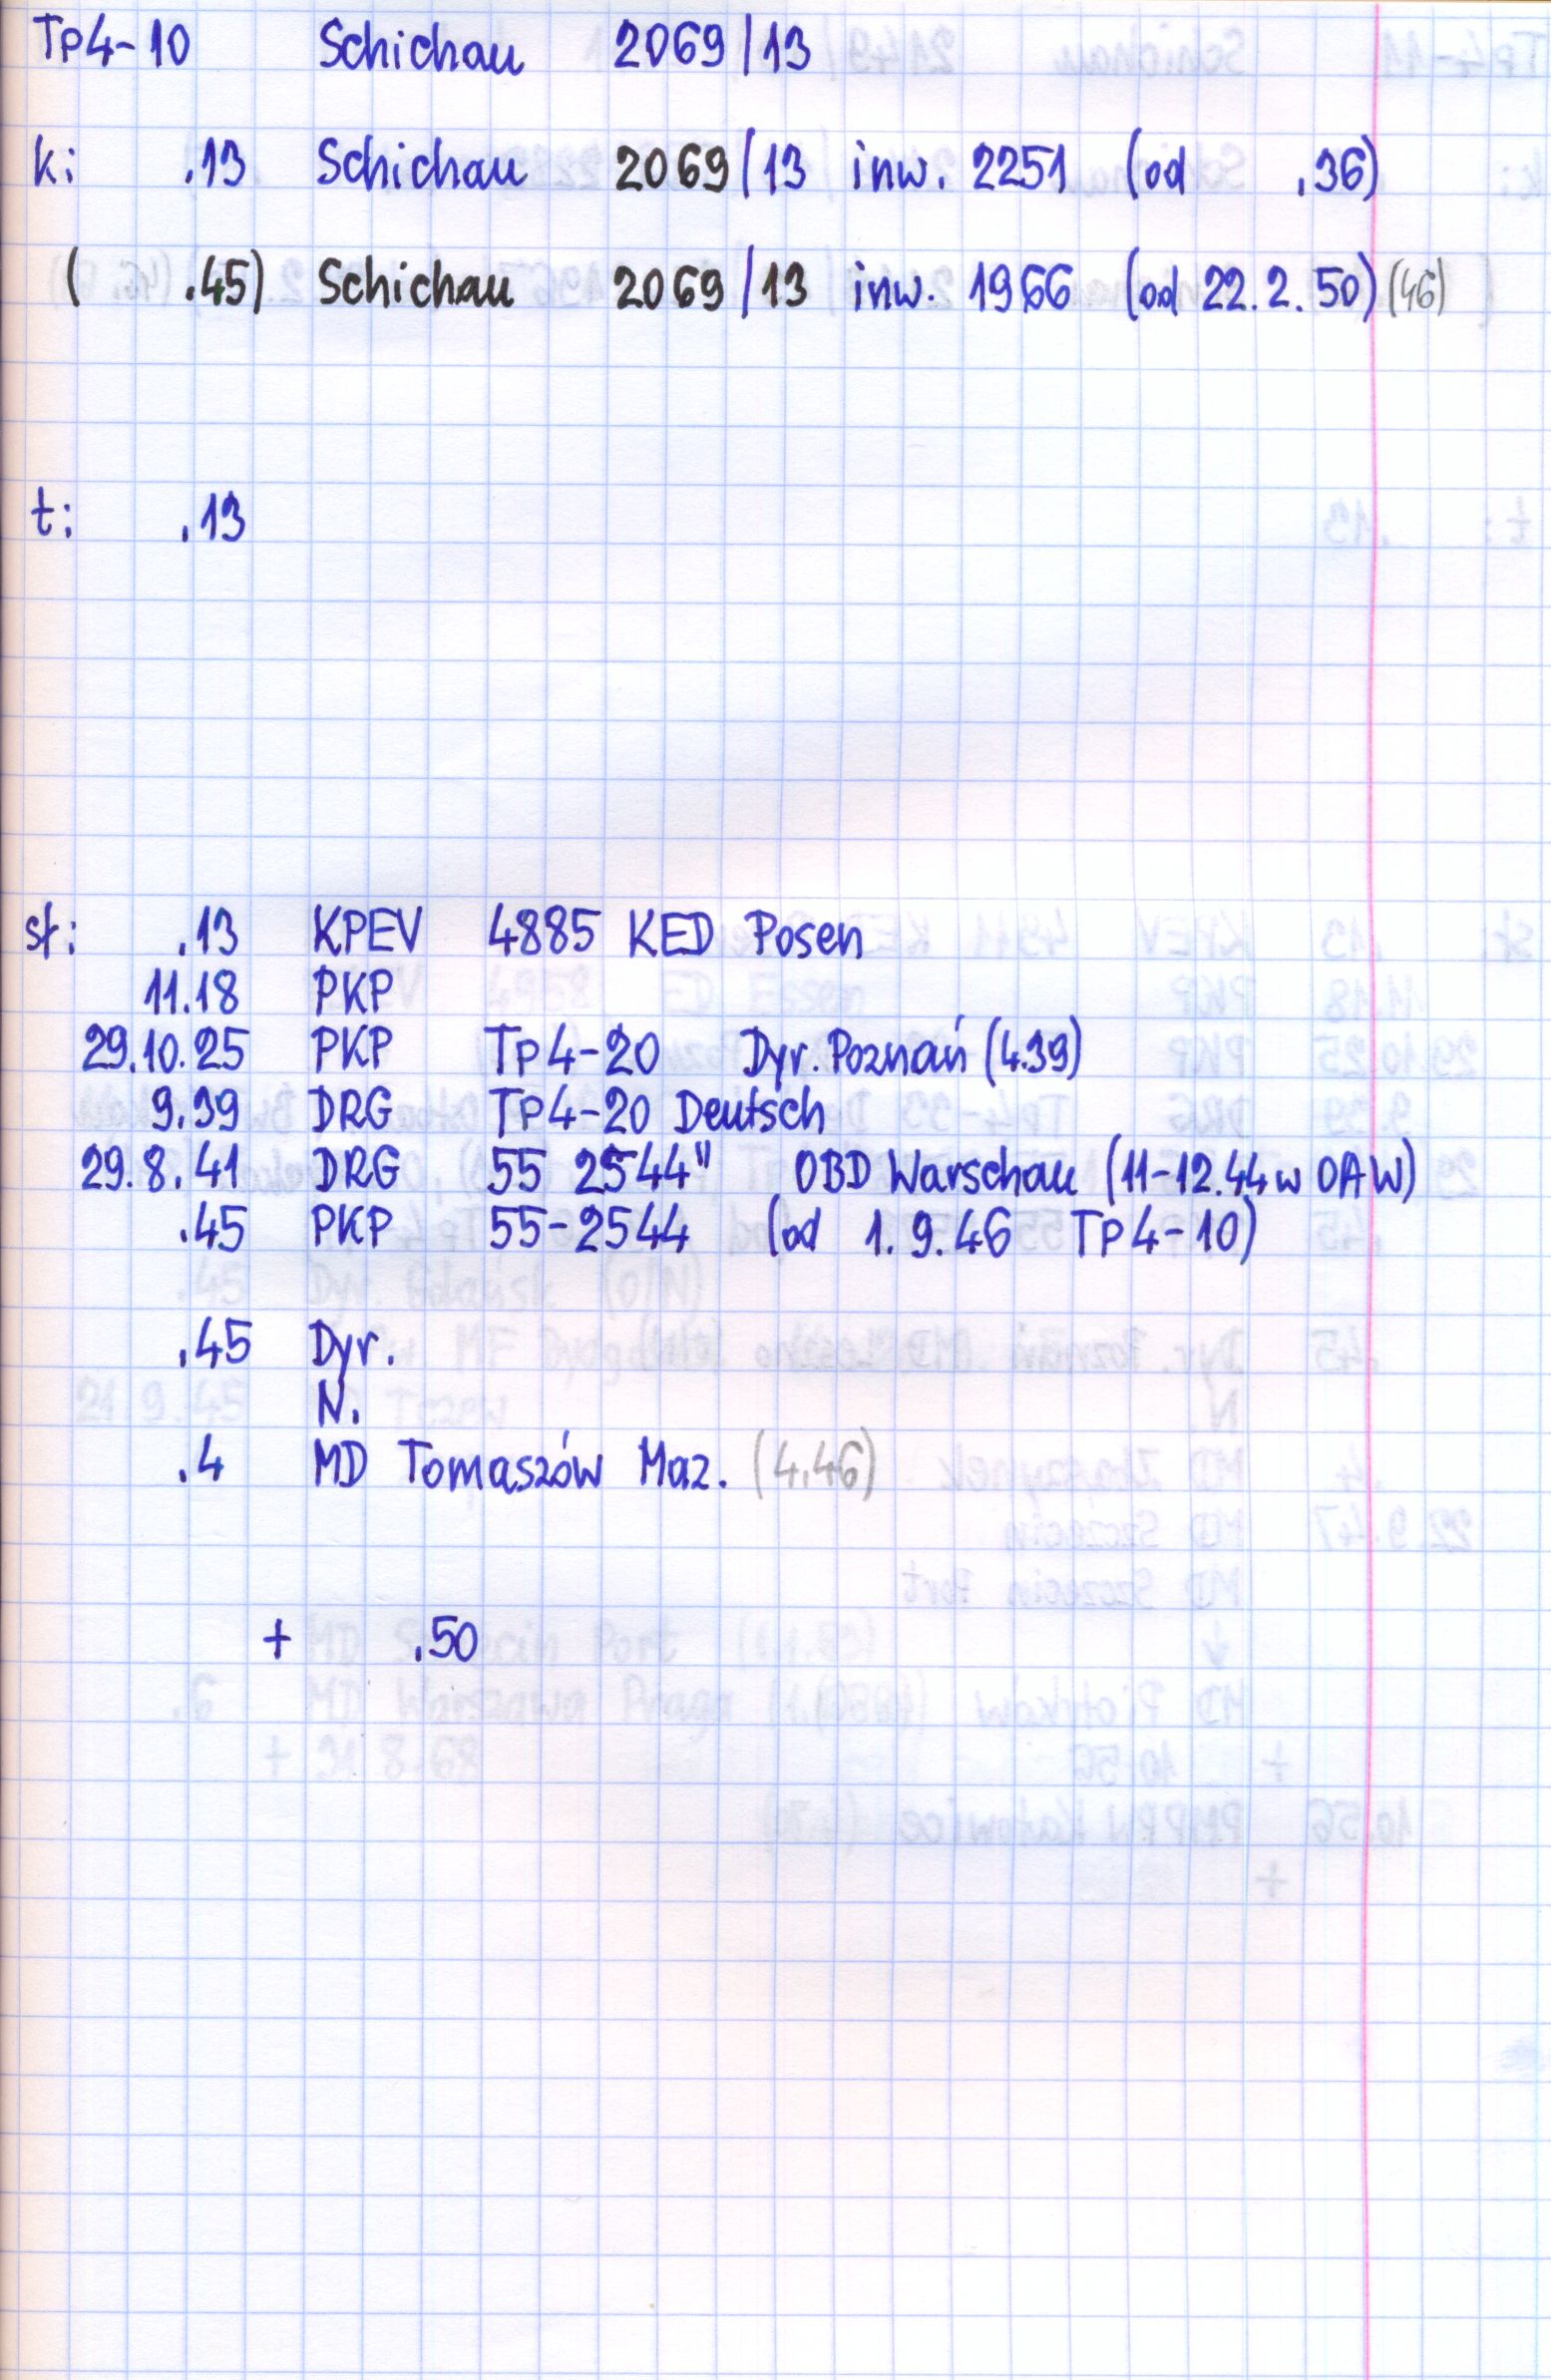 Tp4-10 Schichau 2069/13
k: .13 Schichau 2069/13 inw. 2251 (od .36)
( .45) Schichau 2069/13 inw. 1966 (od 22.2.50) (46)
t: .13
st: .13 KPEV 4885 KED Posen
11.18 PKP
29.10.25 PKP Tp4-20 Dyr. Poznań (4.39)
9.39 DRG Tp4-20 Deutsch
29.8.41 DRG 55 2544" OBD Warschau (11-12.44 w OAW)
.45 PKP 55-2544 (od 1.9.46 Tp4-10)
.45 Dyr.
N.
.4 MD Tomaszów Maz. (4.46)
+ .50